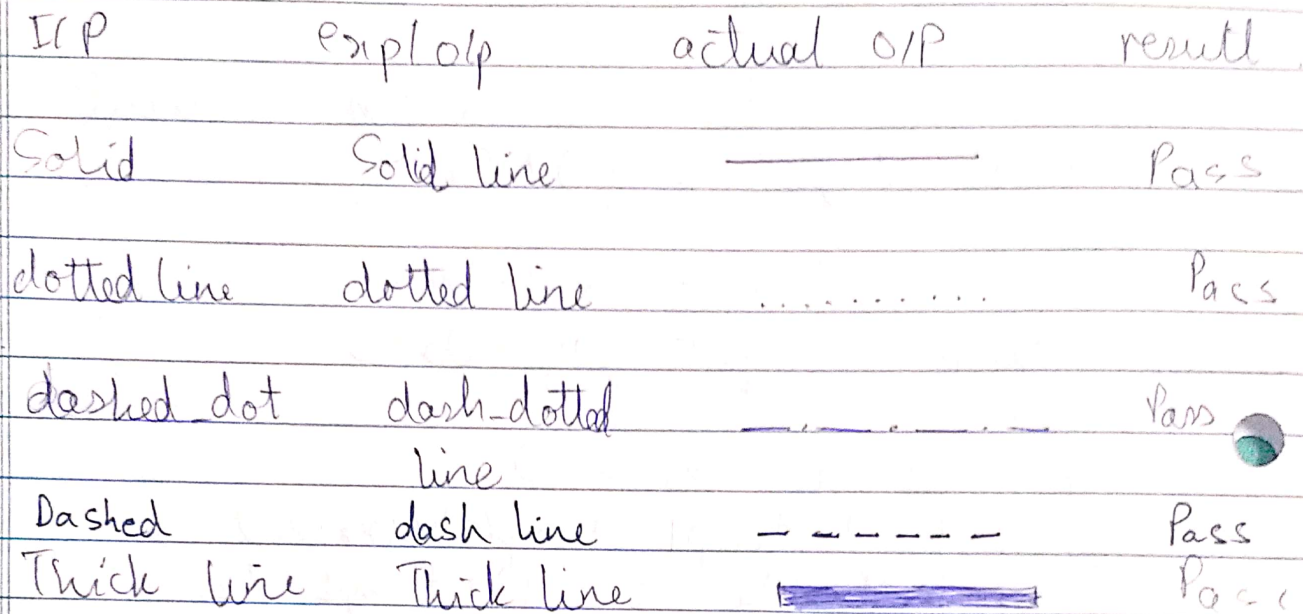 I/P exp/o/p actual O/P result
Solid Solid line Pass
dotted line dotted line Pass
dashed_dot dash-dotted Pass
line
Dashed dash line Pass
Thick line Thick line Pass